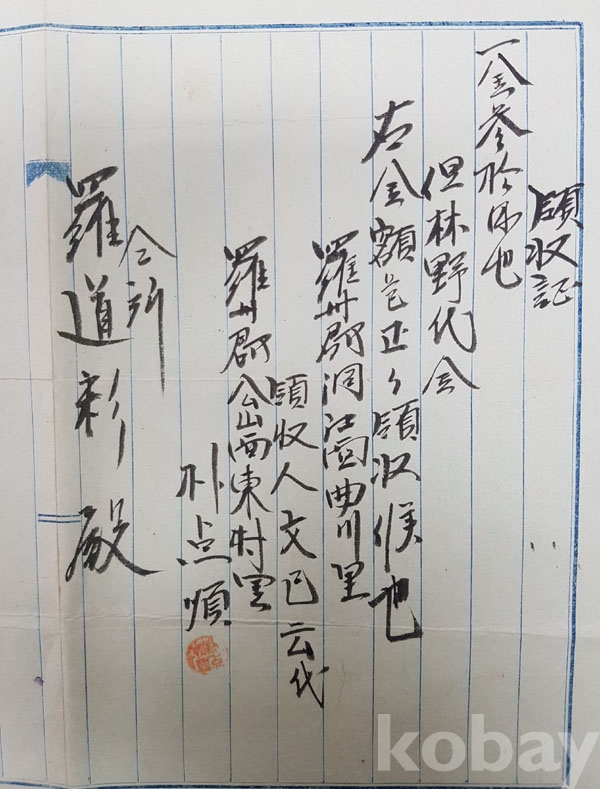 領収証
一金参拾円也
但林野代金
右金額 正 領収候也
羅州郡洞江面曲川里
領収人文 云代
羅州郡公山面東村里
朴点順
仝所
羅道彩殿
kobay